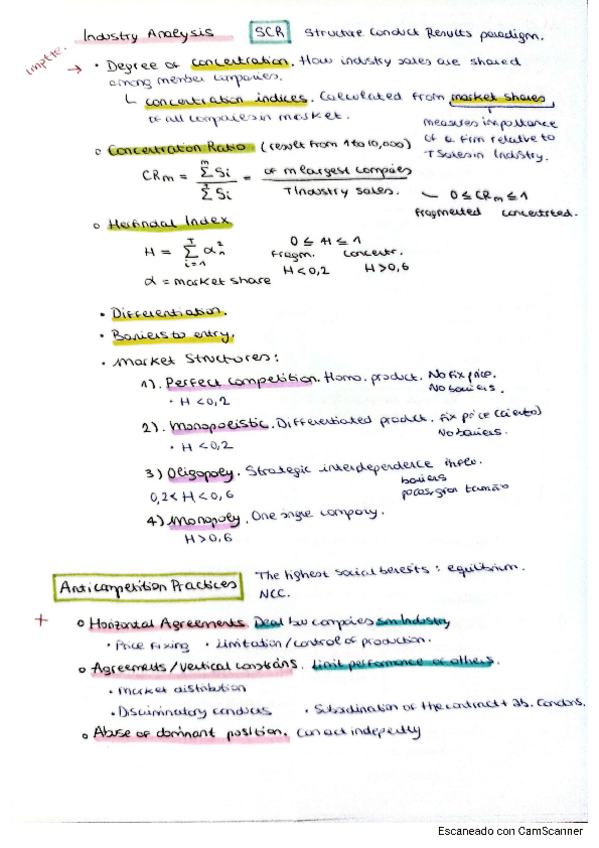 Industry Analysis SCR Structure Conduct Results paradigm.
impte. → • Degree of concentration. How industry sales are shared
among member companies.
↳ concentration indices. Calculated from market shares
of all companies in market. measures importance
of a firm relative to
T Sales in Industry.
○ Concentration Ratio (result from 1 to 10,000)
CRm = Σ^m Si / Σ^T Si = of m largest compies / T Industry sales.
0 ≤ CRm ≤ 1
fragmented concentreed.
○ Herfindal Index
H = Σ^T_{i=1} α²_n 0 ≤ H ≤ 1
Fragm. Concentr.
H<0,2 H>0,6
α = market share
• Differentiation.
• Barriers to entry.
• Market Structures:
1). Perfect competition. Homo. product. No fix price.
No barriers.
• H <0,2
2). Monopolistic. Differentiated product. fix price (cierto)
No barriers.
• H <0,2
3) Oligopoly. Strategic interdependence
barriers
pocas, gran
0,2< H <0,6
4) Monopoly. One single company.
H>0,6
Anticompetition Practices The highest social benefits : equilibrium.
NCC.
+ ○ Horizontal Agreements. Deal bw compies sm Industry
• Price fixing • Limitation/control of production.
○ Agreements/Vertical constrains. Limit performance of others.
• Market distribution
• Discriminatory conducts • Subordination of the contract +
○ Abuse of dominant position. Can act indepently
Escaneado con CamScanner